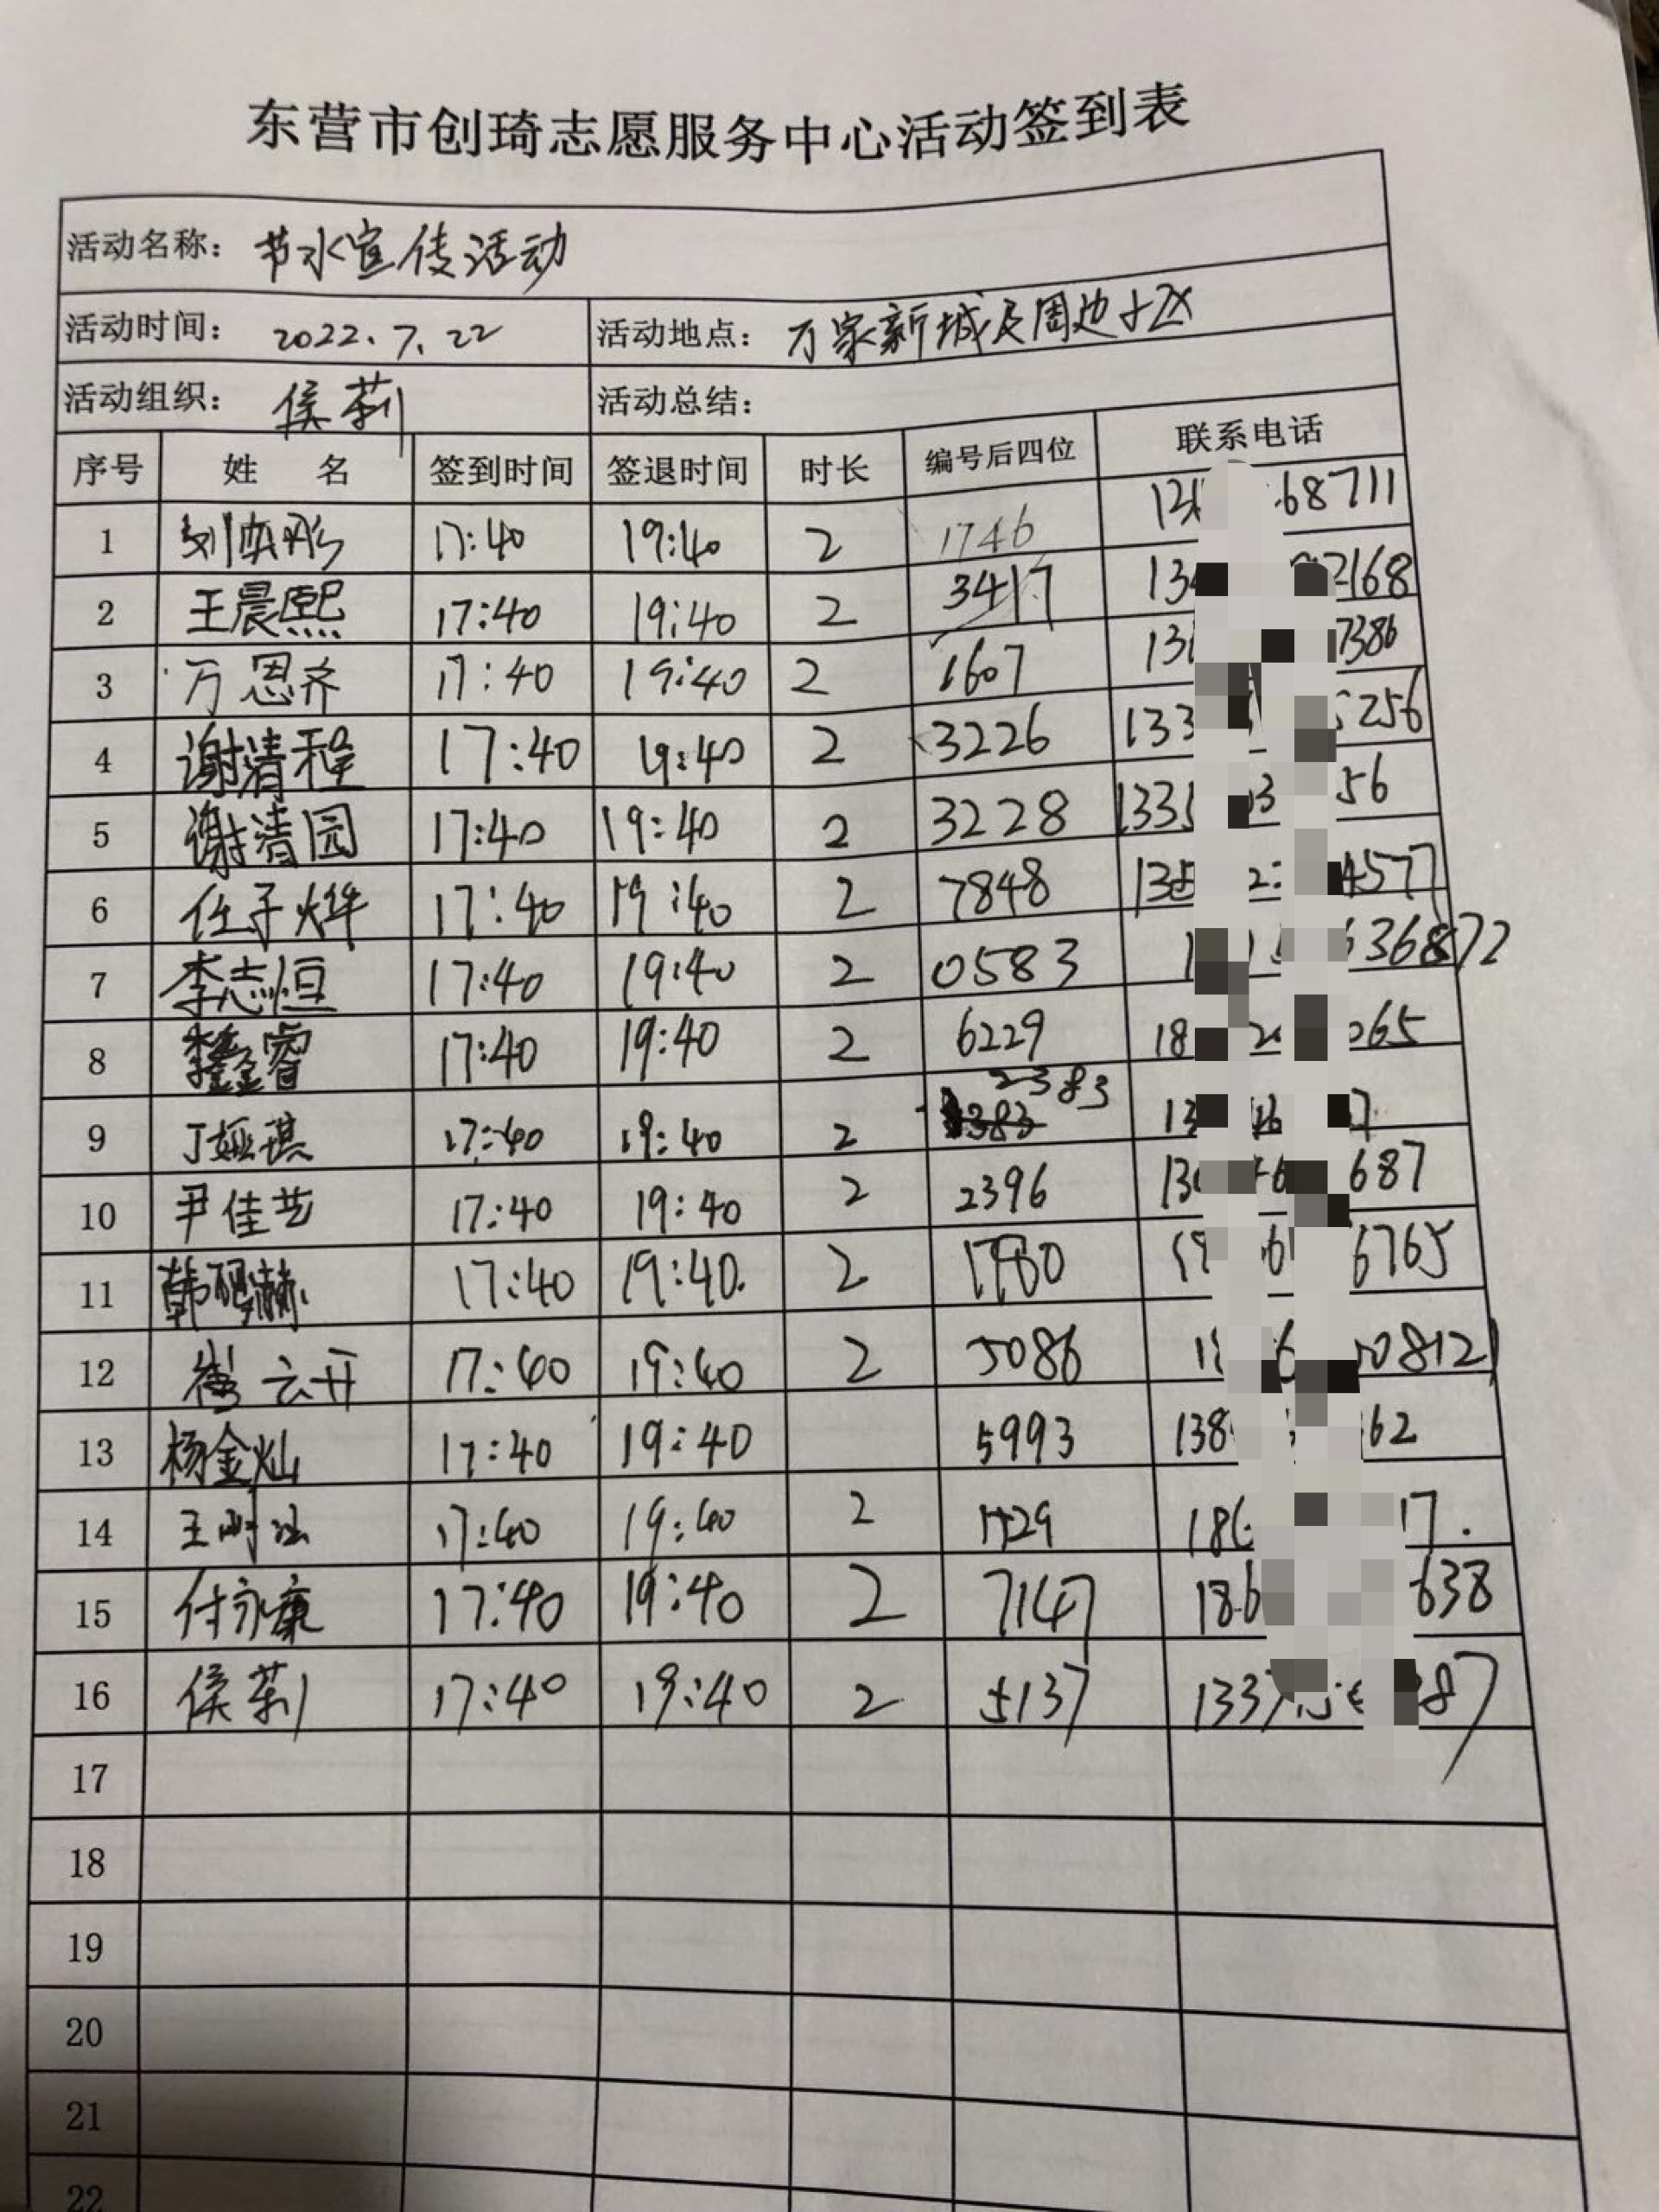 东营市创琦志愿服务中心活动签到表
活动名称: 节水宣传活动
活动时间: 2022.7.22 活动地点: 万家新城及周边小区
活动组织: 侯莉 活动总结:
序号 姓 名 签到时间 签退时间 时长 编号后四位 联系电话
1 17:40 19:40 2 1746 68711
2 王晨熙 17:40 19:40 2 3417 13 2168
3 万恩齐 17:40 19:40 2 1607 13 7386
4 谢清程 17:40 19:40 2 3226 133 256
5 谢清园 17:40 19:40 2 3228 133 56
6 任子烨 17:40 19:40 2 7848 135 4577
7 李志恒 17:40 19:40 2 0583 1 636872
8 李鑫睿 17:40 19:40 2 6229 18 065
9 丁娅琪 17:40 19:40 2 2383 13 7
10 尹佳艺 17:40 19:40 2 2396 13 687
11 17:40 19:40. 2 6765
12 崔云开 17:40 19:40 2 5086 1 08121
13 杨金灿 17:40 19:40 5993 138 62
14 17:40 19:40 2 186 17.
15 付永康 17:40 19:40 2 7147 186 638
16 侯莉 17:40 19:40 2 5137 1337 87
17
18
19
20
21
22